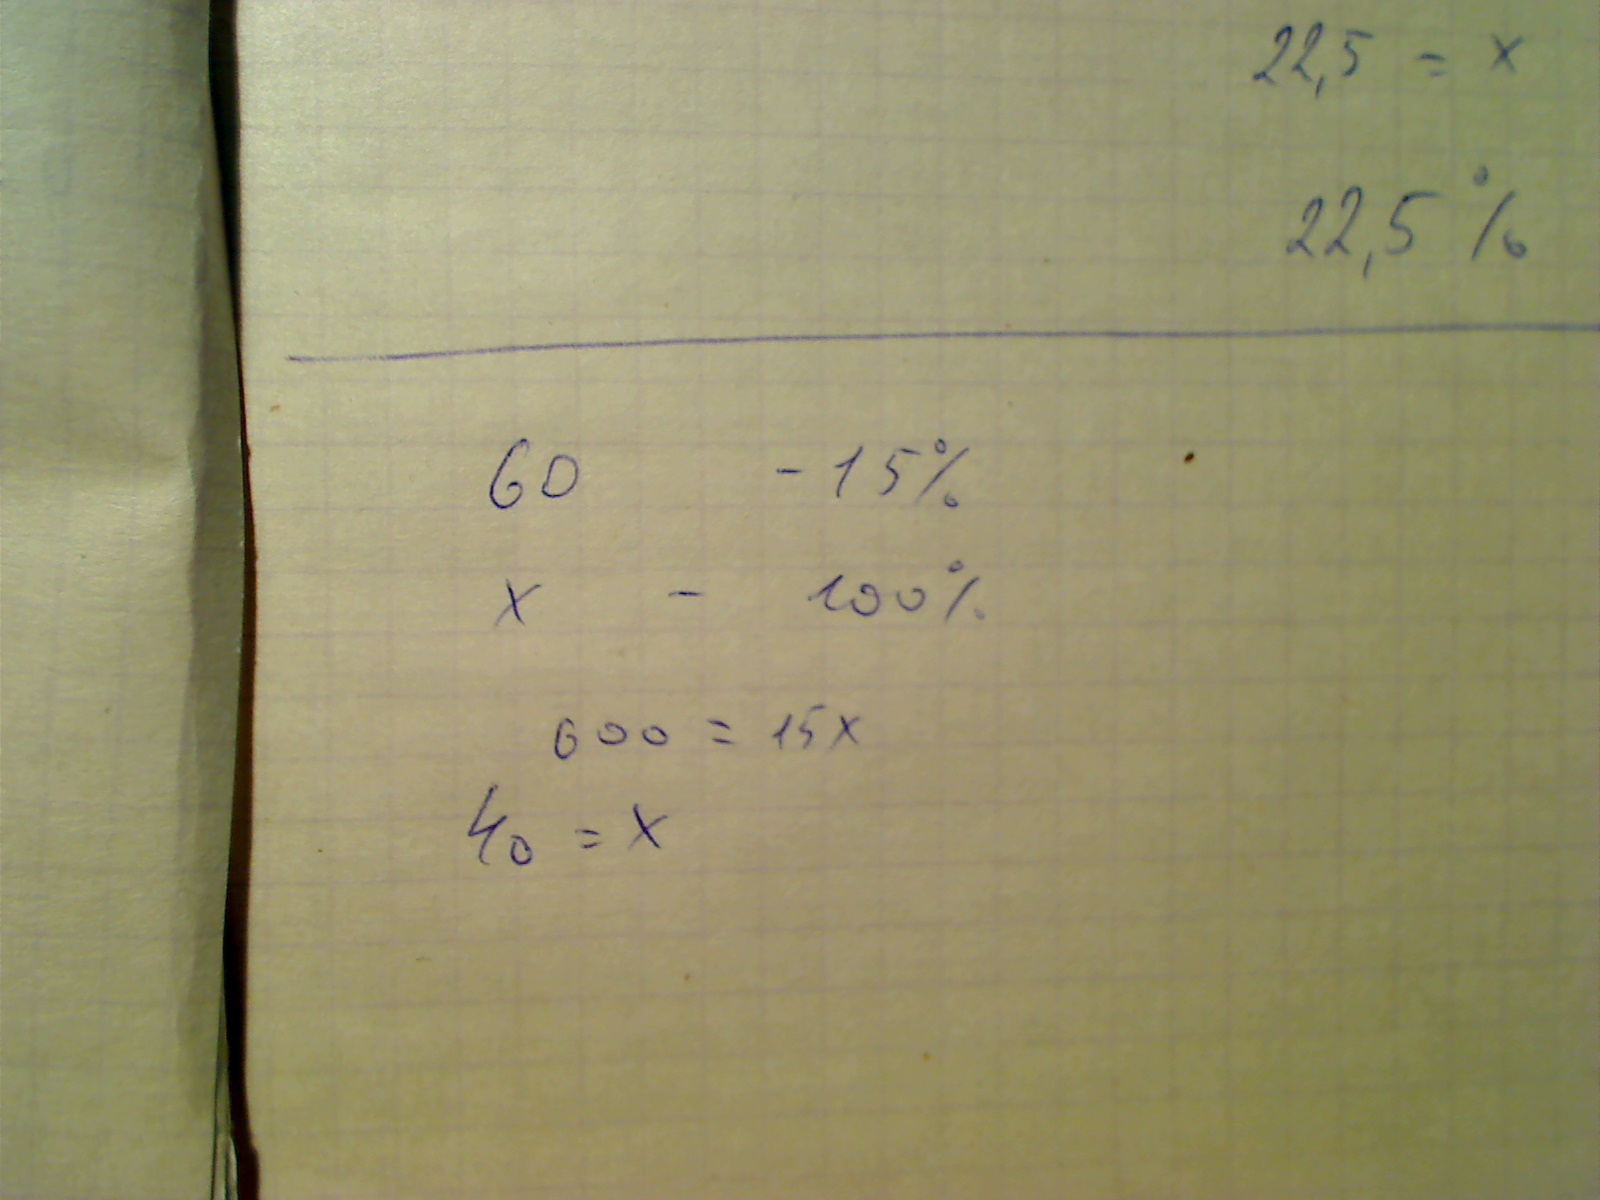 22,5 = x
22,5 %
60 - 15%
x - 100%
600 = 15x
40 = x